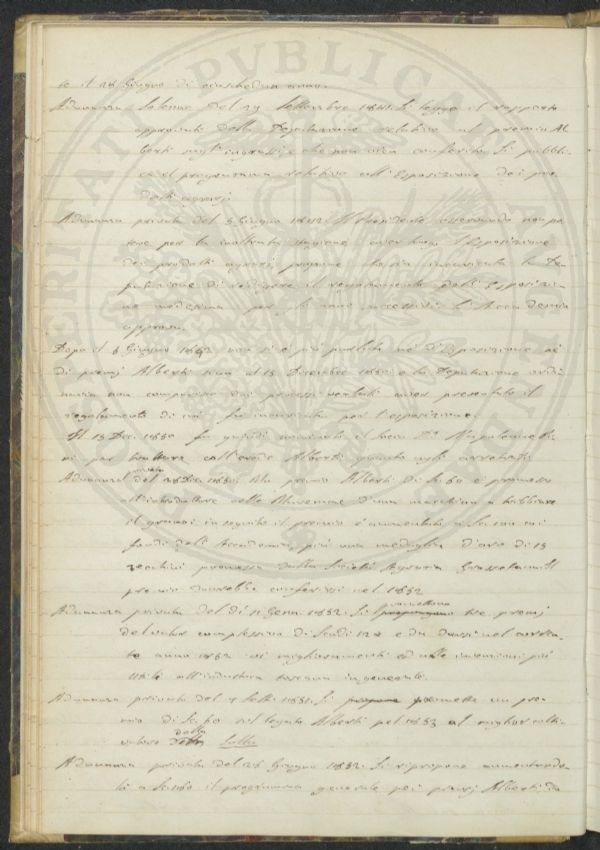 te il 28 Giugno di ciaschedun anno.
Adunanza Solenne del 29 Settembre 1841. Si legge il rapporto
approvato della Deputazione relativo al premio Al-
berti negl'ingrassi, e che non vien conferito. Si pubbli-
ca il programma relativo all'Esposizione dei pro-
dotti agrarj.
Adunanza privata del 5 Giugno 1842. Il Presidente osservando non po-
tere per la inoltrata stagione aver luogo l'Esposizione
dei prodotti agrarj, propone che sia incaricata la De-
putazione di redigere il regolamento dell'Esposizio-
ne medesima per gli anni successivi. L'Accademia
approva.
Dopo il 5 Giugno 1842 non si è più parlato nè di Esposizione nè
di premj Alberti sino al 15 Dicembre 1850 e la Deputazione ordi
naria non comparisce dai processi verbali aver presentato il
regolamento di cui fu incaricata per l'esposizione.
Il 15 Dec. 1850 fu quindi nominato il Socio Napoleone
per trattare coll'erede Alberti quanto agli arretrati.
Adunanza privata del 28 Dec. 1850. Un premio Alberti di Sc. 60 è promesso
all'introduttore nelle Maremme d'una macchina a trebbiare
il grano: in seguito il premio è aumentato a Sc. 100 coi
fondi dell'Accademia, più una medaglia d'oro di 15
zecchini promessa dalla Società Agraria Grossetana. Il
premio dovrebbe conferirsi nel 1852
Adunanza privata del dì 11 Genn. 1852. Si promettono tre premj
del valor complessivo di Scudi 120 e da darsi nel corren-
te anno 1852 ai miglioramenti ed alle invenzioni più
utili all'industria toscana in generale.
Adunanza privata del 7 Sett. 1851. Si promette un pre-
mio di Sc. 60 sul legato Alberti pel 1853 al miglior colti-
vatore della Sulla
Adunanza privata del 28 Giugno 1852. Si ripropone aumentando-
lo a Sc. 100 il programma generale pei premj Alberti da